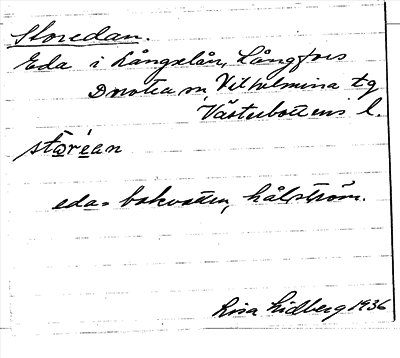 Storedan.
Eda i Långselån, Långfors
Dorotea sn, Vilhelmina tg
Västerbottens l.
stòrèan
eda = bakvatten, hålström.
Lisa Lidberg 1936